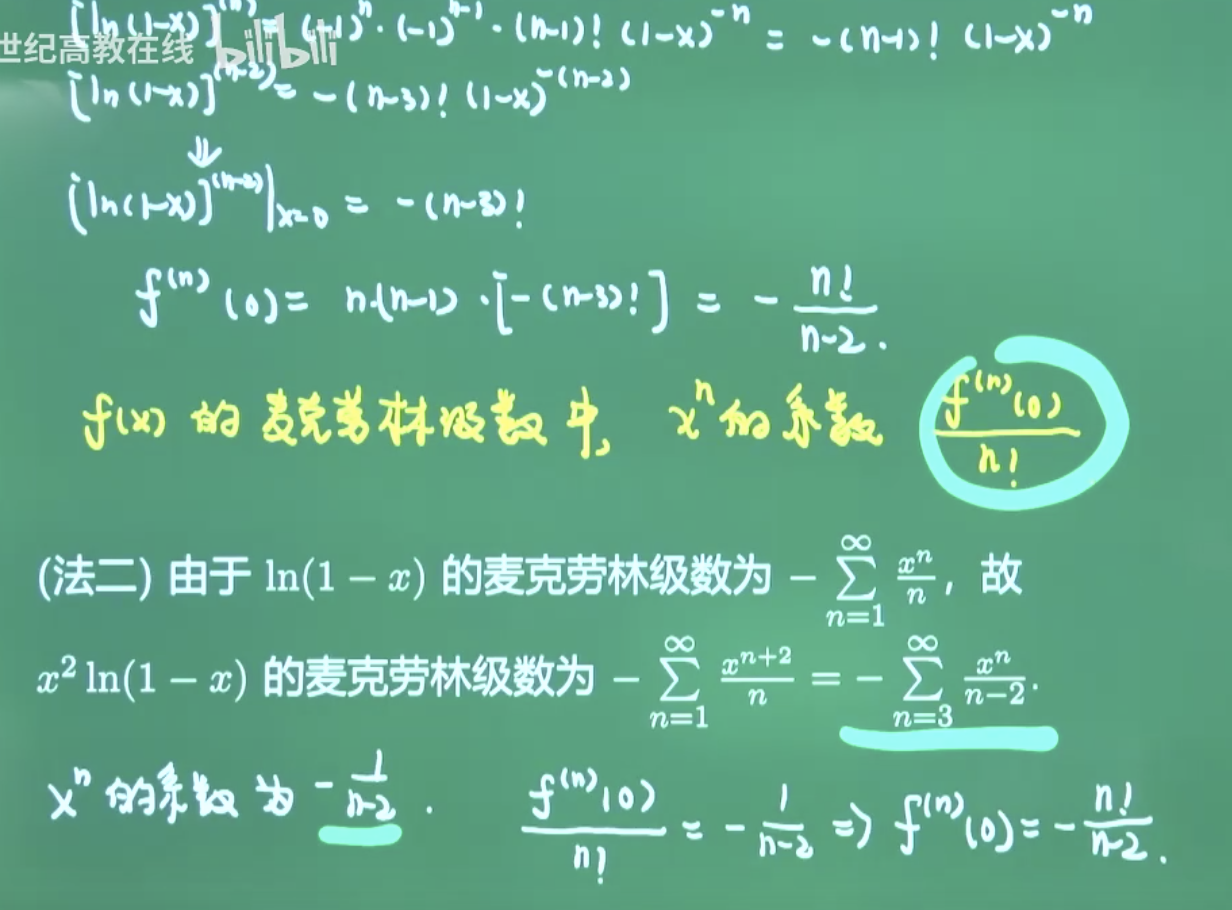 [ln(1-x)]^(n) = (-1)^n · (-1)^{n-1} · (n-1)! (1-x)^{-n} = -(n-1)! (1-x)^{-n}
世纪高教在线 bilibili
[ln(1-x)]^(n-2) = -(n-3)! (1-x)^{-(n-2)}
⇓
[ln(1-x)]^(n-2)|_{x=0} = -(n-3)!
f^(n)(0) = n·(n-1)·[-(n-3)!] = - n!/(n-2).
f(x) 的麦克劳林级数中, x^n 的系数 f^(n)(0)/n!
(法二) 由于 ln(1 − x) 的麦克劳林级数为 − ∑_{n=1}^{∞} x^n/n, 故
x² ln(1 − x) 的麦克劳林级数为 − ∑_{n=1}^{∞} x^{n+2}/n = − ∑_{n=3}^{∞} x^n/(n−2).
x^n 的系数为 - 1/(n-2). f^(n)(0)/n! = - 1/(n-2) ⇒ f^(n)(0) = - n!/(n-2).